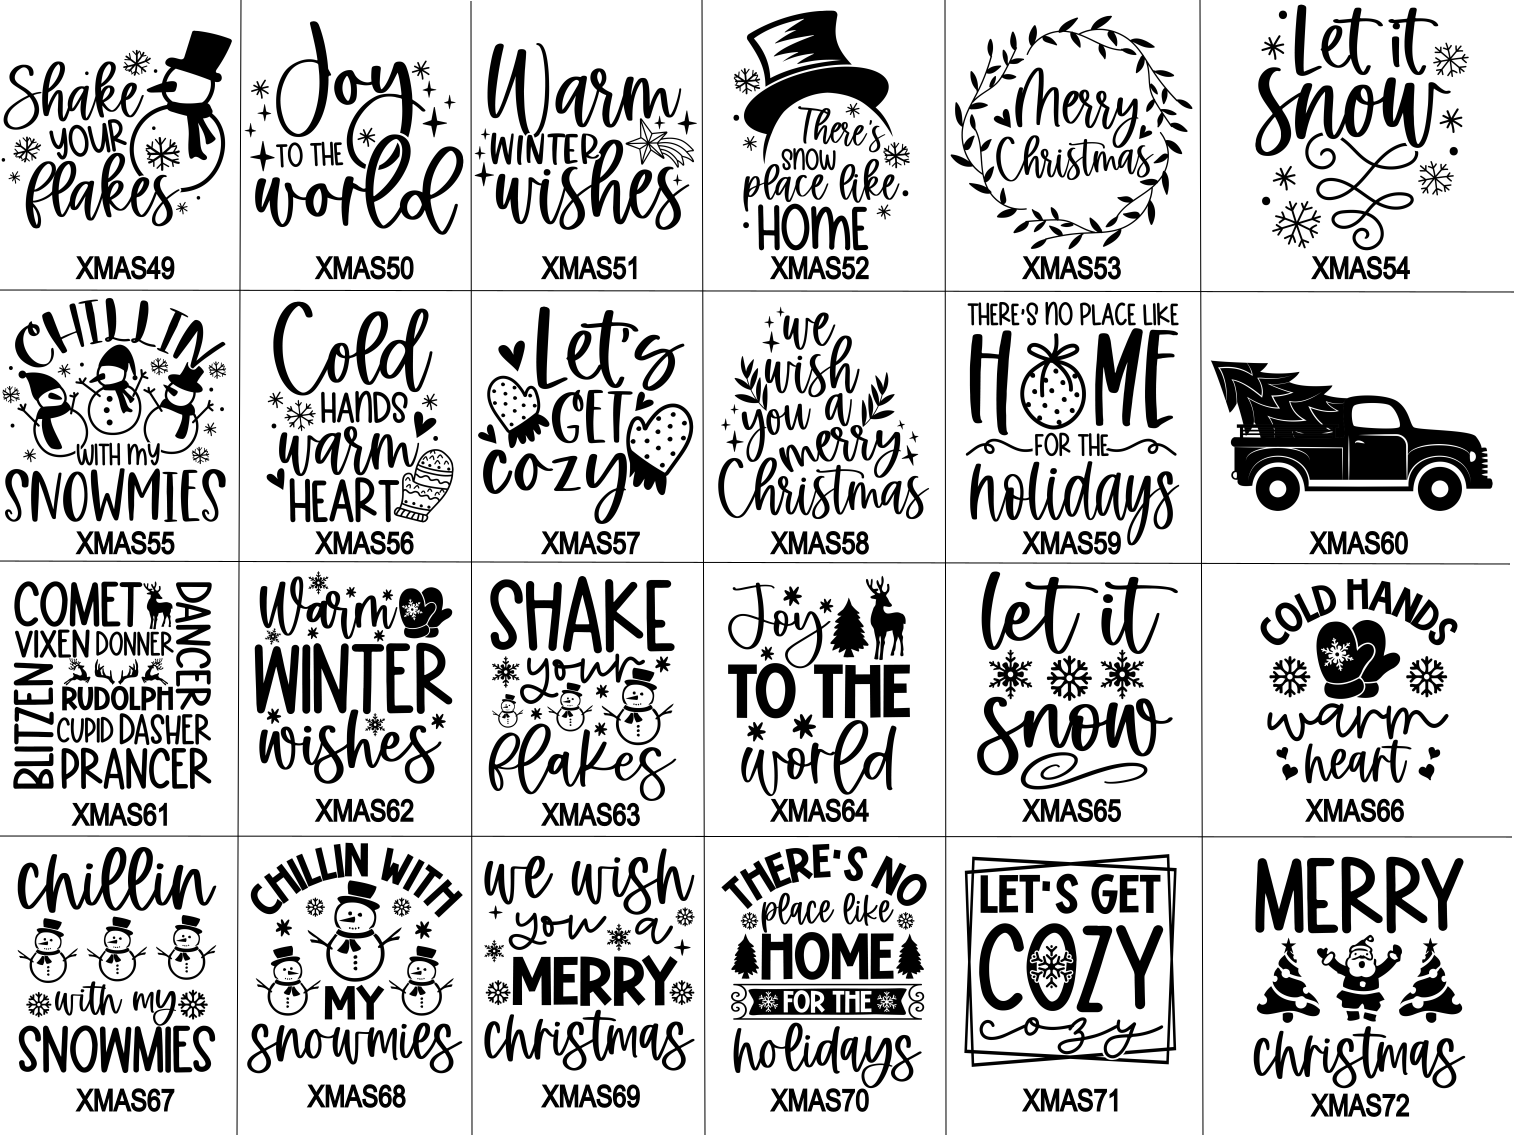 Shake
YOUR
flakes
XMAS49
Joy
TO THE
world
XMAS50
Warm
WINTER
wishes
XMAS51
There's
SNOW
place like
HOME
XMAS52
Merry
Christmas
XMAS53
Let it
Snow
XMAS54
CHILLIN
WITH MY
SNOWMIES
XMAS55
Cold
HANDS
warm
HEART
XMAS56
Let's
GET
cozy
XMAS57
we
wish
you a
merry
Christmas
XMAS58
THERE'S NO PLACE LIKE
HOME
FOR THE
holidays
XMAS59
XMAS60
COMET
DANCER
VIXEN DONNER
BLITZEN
RUDOLPH
CUPID DASHER
PRANCER
XMAS61
Warm
WINTER
wishes
XMAS62
SHAKE
your
flakes
XMAS63
Joy
TO THE
world
XMAS64
let it
snow
XMAS65
COLD HANDS
warm
heart
XMAS66
chillin
with my
SNOWMIES
XMAS67
CHILLIN WITH
MY
snowmies
XMAS68
we wish
you a
MERRY
christmas
XMAS69
THERE'S NO
place like
HOME
FOR THE
holidays
XMAS70
LET'S GET
COZY
cozy
XMAS71
MERRY
christmas
XMAS72